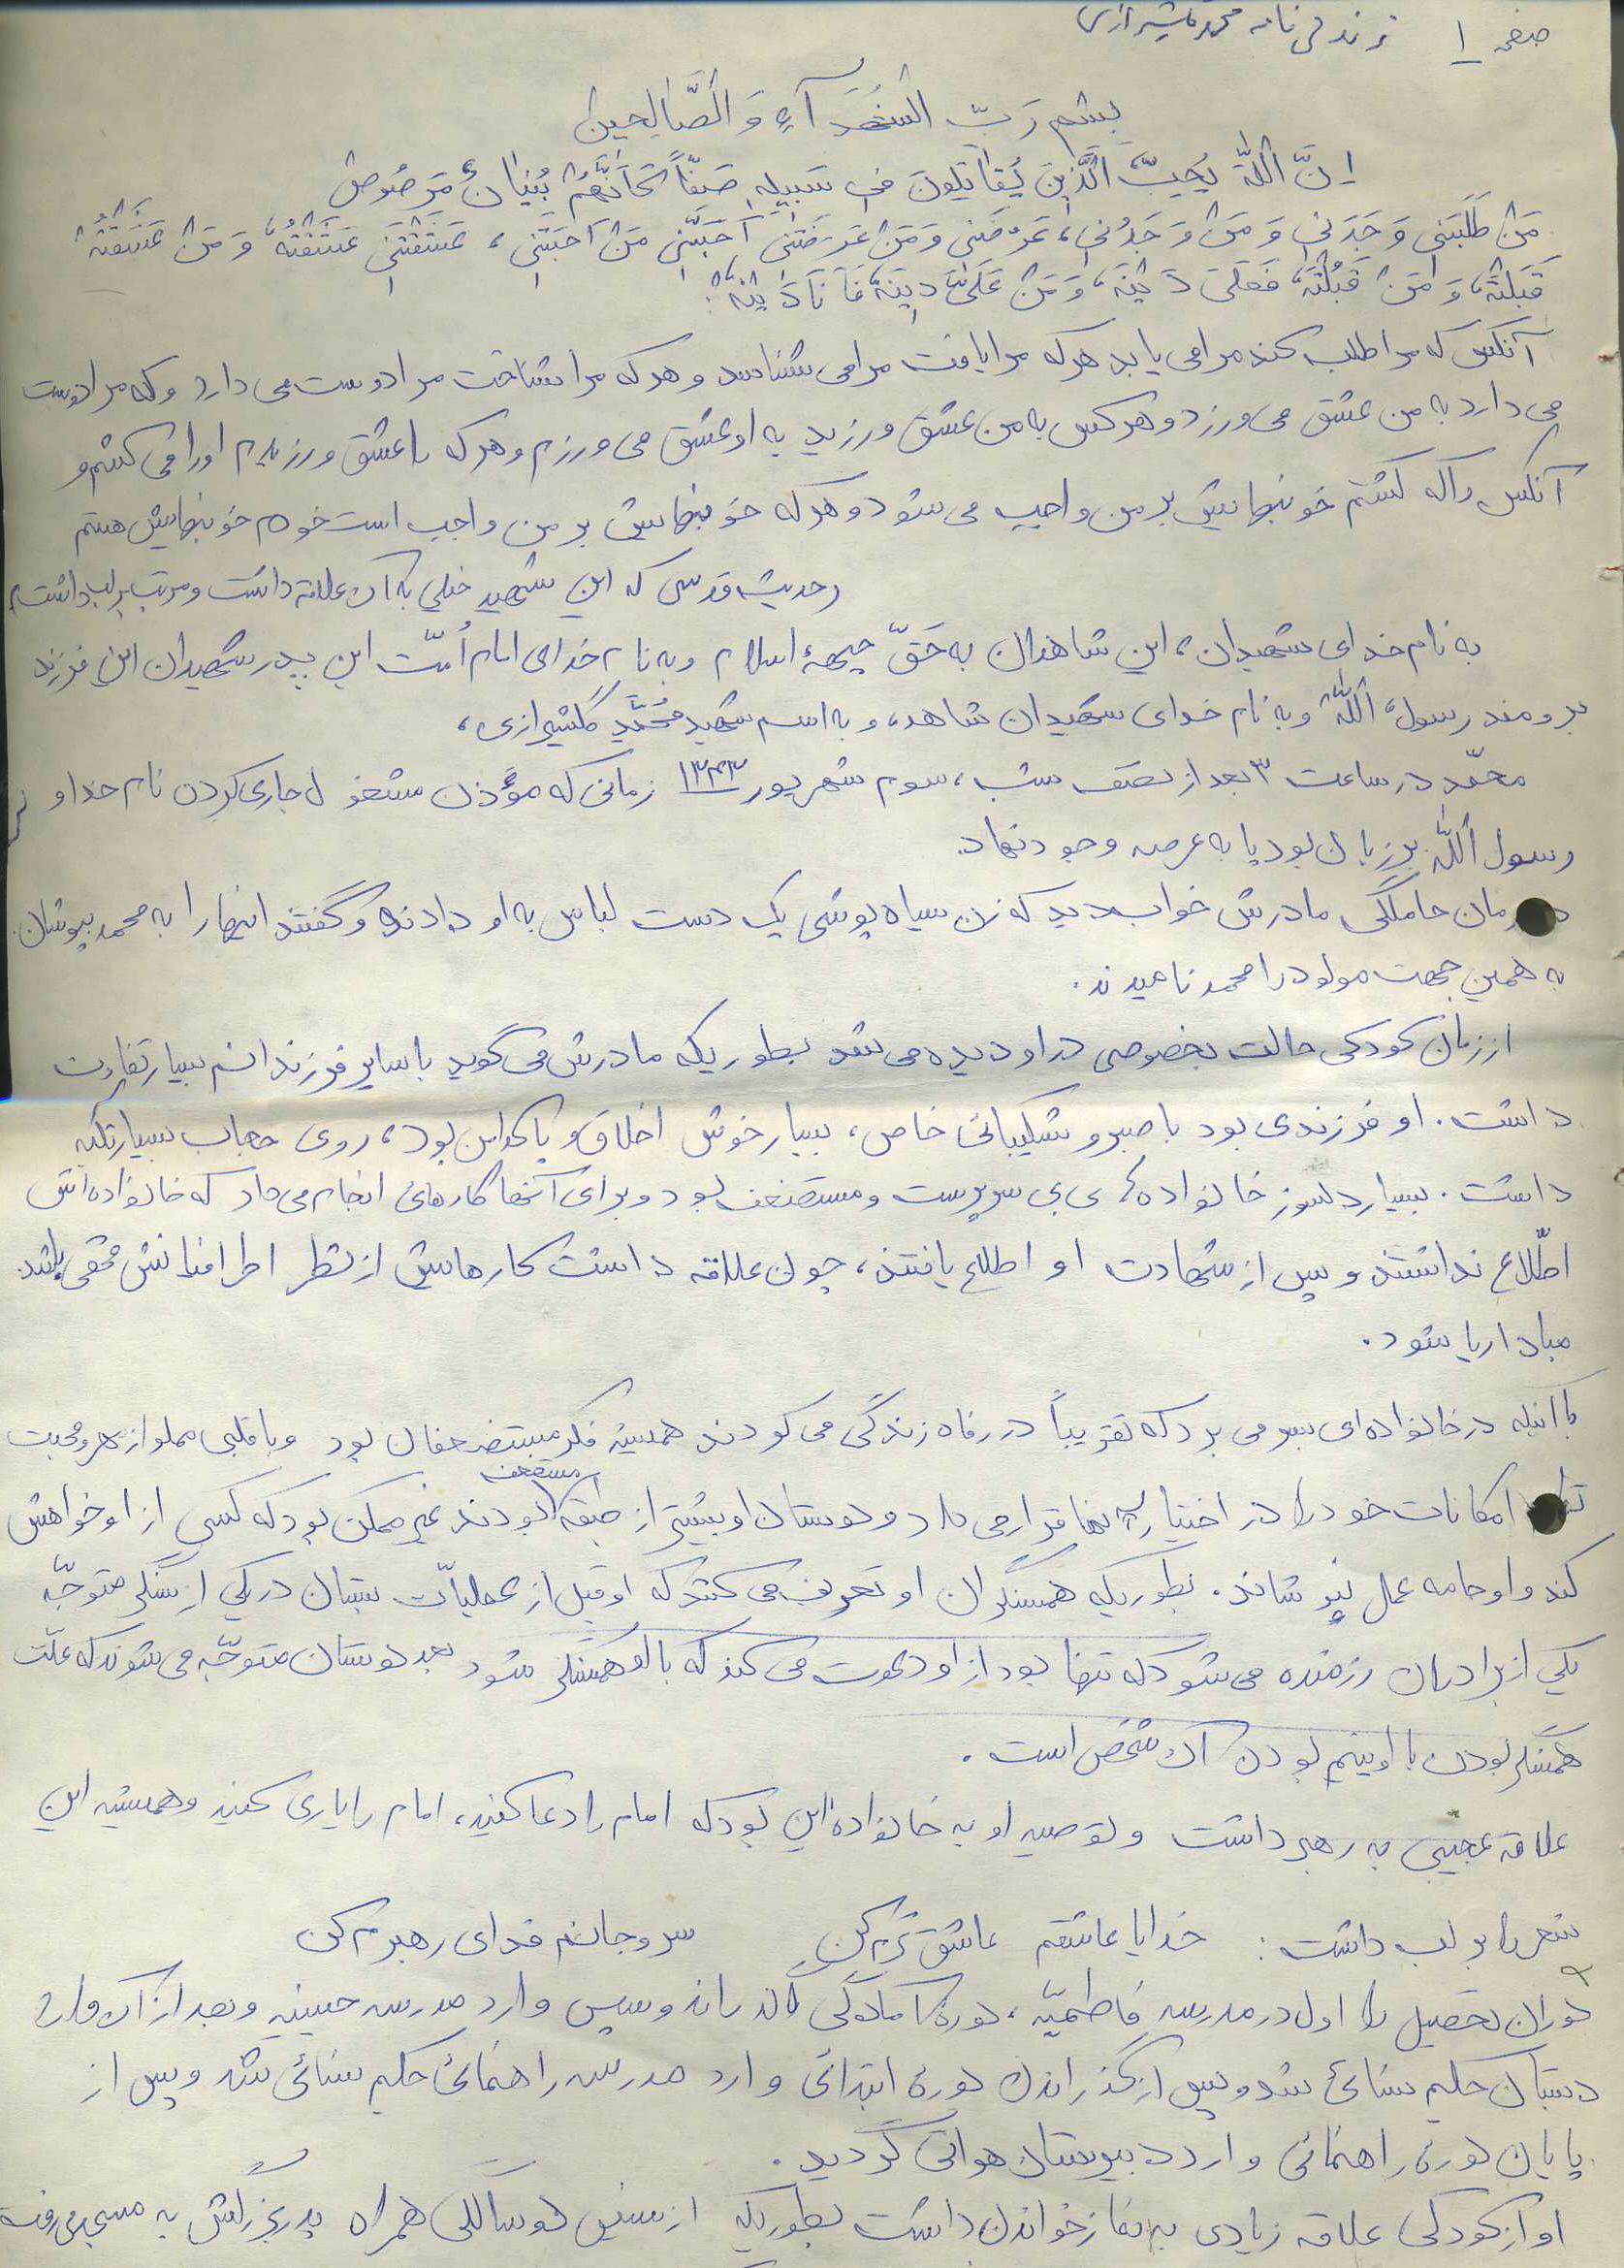 صفحه ۱ زندگی نامه محمد گلشیرازی
بِسْمِ رَبِّ الشُّهَدَآءِ وَ الصَّالِحینْ
اِنَّ اللّٰهَ یُحِبُّ الَّذینَ یُقاتِلُونَ فی سَبیلِهِ صَفّاً کَاَنَّهُمْ بُنْیانٌ مَرْصُوصْ
مَنْ طَلَبَنی وَجَدَنی وَ مَنْ وَجَدَنی، عَرَفَنی وَ مَنْ عَرَفَنی اَحَبَّنی مَنْ اَحَبَّنی، عَشَقَنی عَشَقْتُهُ وَ مَنْ عَشَقْتُهُ
قَتَلْتُهُ، وَ مَنْ قَتَلْتُهُ، فَعَلَیَّ دِیَتُهُ، وَ مَنْ عَلَیَّ دِیَتُهُ فَاَنَا دِیَتُهُ.
آنکس که مرا طلب کند مرا می یابد هرکه مرا یافت مرا می شناسد و هرکه مرا شناخت مرا دوست می دارد و که مرا دوست
می دارد به من عشق می ورزد و هرکس به من عشق ورزید به او عشق می ورزم و هرکه را عشق ورزیدم او را می کشم و
آنکس را که کشتم خونبهایش بر من واجب می شود و هرکه خونبهایش بر من واجب است خودم خونبهایش هستم
(حدیث قدسی که این شهید خیلی به آن علاقه داشت و مرتب بر لب داشت)
به نام خدای شهیدان، این شاهدان به حَقّ جبههٔ اسلام و به نام خدای امام اُمّت این پدر شهیدان این فرزند
برومند رسولُ اللّٰه و به نام خدای شهیدان شاهد، و به اسم شهید مُحَمَّد گلشیرازی،
محمّد در ساعت ۳ بعد از نصف شب، سوم شهریور ۱۳۴۳ زمانی که مؤذن مشغول جاری کردن نام خدا و
رسول اللّٰه بر زبان بود پا به عرصه وجود نهاد.
در زمان حاملگی مادرش خواب دید که زن سیاه پوشی یک دست لباس به او دادند و گفتند اینها را به محمد بپوشان.
به همین جهت مولود را محمد نامیدند.
از زمان کودکی حالت بخصوصی در او دیده می شد بطوریکه مادرش می گوید با سایر فرزندانم بسیار تفاوت
داشت. او فرزندی بود با صبر و شکیبائی خاص، بسیار خوش اخلاق و پاکدامن بود، روی حجاب بسیار تکیه
داشت. بسیار دلسوز خانواده های بی سرپرست و مستضعف بود و برای آنها کارهائی انجام می داد که خانواده اش
اطّلاع نداشتند و پس از شهادت او اطلاع یافتند، چون علاقه داشت کارهایش از نظر اطرافیانش مخفی باشد
مبادا ریا شود.
با آنکه در خانواده ای بسر می برد که تقریباً در رفاه زندگی می کردند همیشه فکر مستضعفان بود و با قلبی مملو از مهر و محبت
تمام امکانات خود را در اختیار آنها قرار می داد و دوستان او بیشتر از طبقه مستضعف بودند غیر ممکن بود که کسی از او خواهش
کند و او جامه عمل نپوشاند. بطوریکه همسنگران او تعریف می کنند که او قبل از عملیّات بستان در یکی از سنگر متوجّه
یکی از برادران رزمنده می شود که تنها بود از او دعوت می کند که با او همسنگر شود بعد دوستان متوجّه می شوند که علّت
همسنگر بودن با او یتیم بودن آن شخص است.
علاقه عجیبی به رهبر داشت و توصیه او به خانواده این بود که امام را دعا کنید، امام را یاری کنید و همیشه این
شعر را بر لب داشت: خدایا عاشقم عاشق ترم کن سر و جانم فدای رهبرم کن
دوران تحصیل را اول در مدرسه فاطمیّه، دوره آمادگی گذراند و سپس وارد مدرسه حسینیه و بعد از آن وارد
دبستان حکیم سنائی شد و پس از گذراندن دورهٔ ابتدائی وارد مدرسه راهنمائی حکیم سنائی شد و پس از
پایان دوره راهنمائی وارد دبیرستان هراتی گردید.
او از کودکی علاقه زیادی به نماز خواندن داشت بطوریکه از سنین دو سالگی همراه پدربزرگش به مسجد می رفت